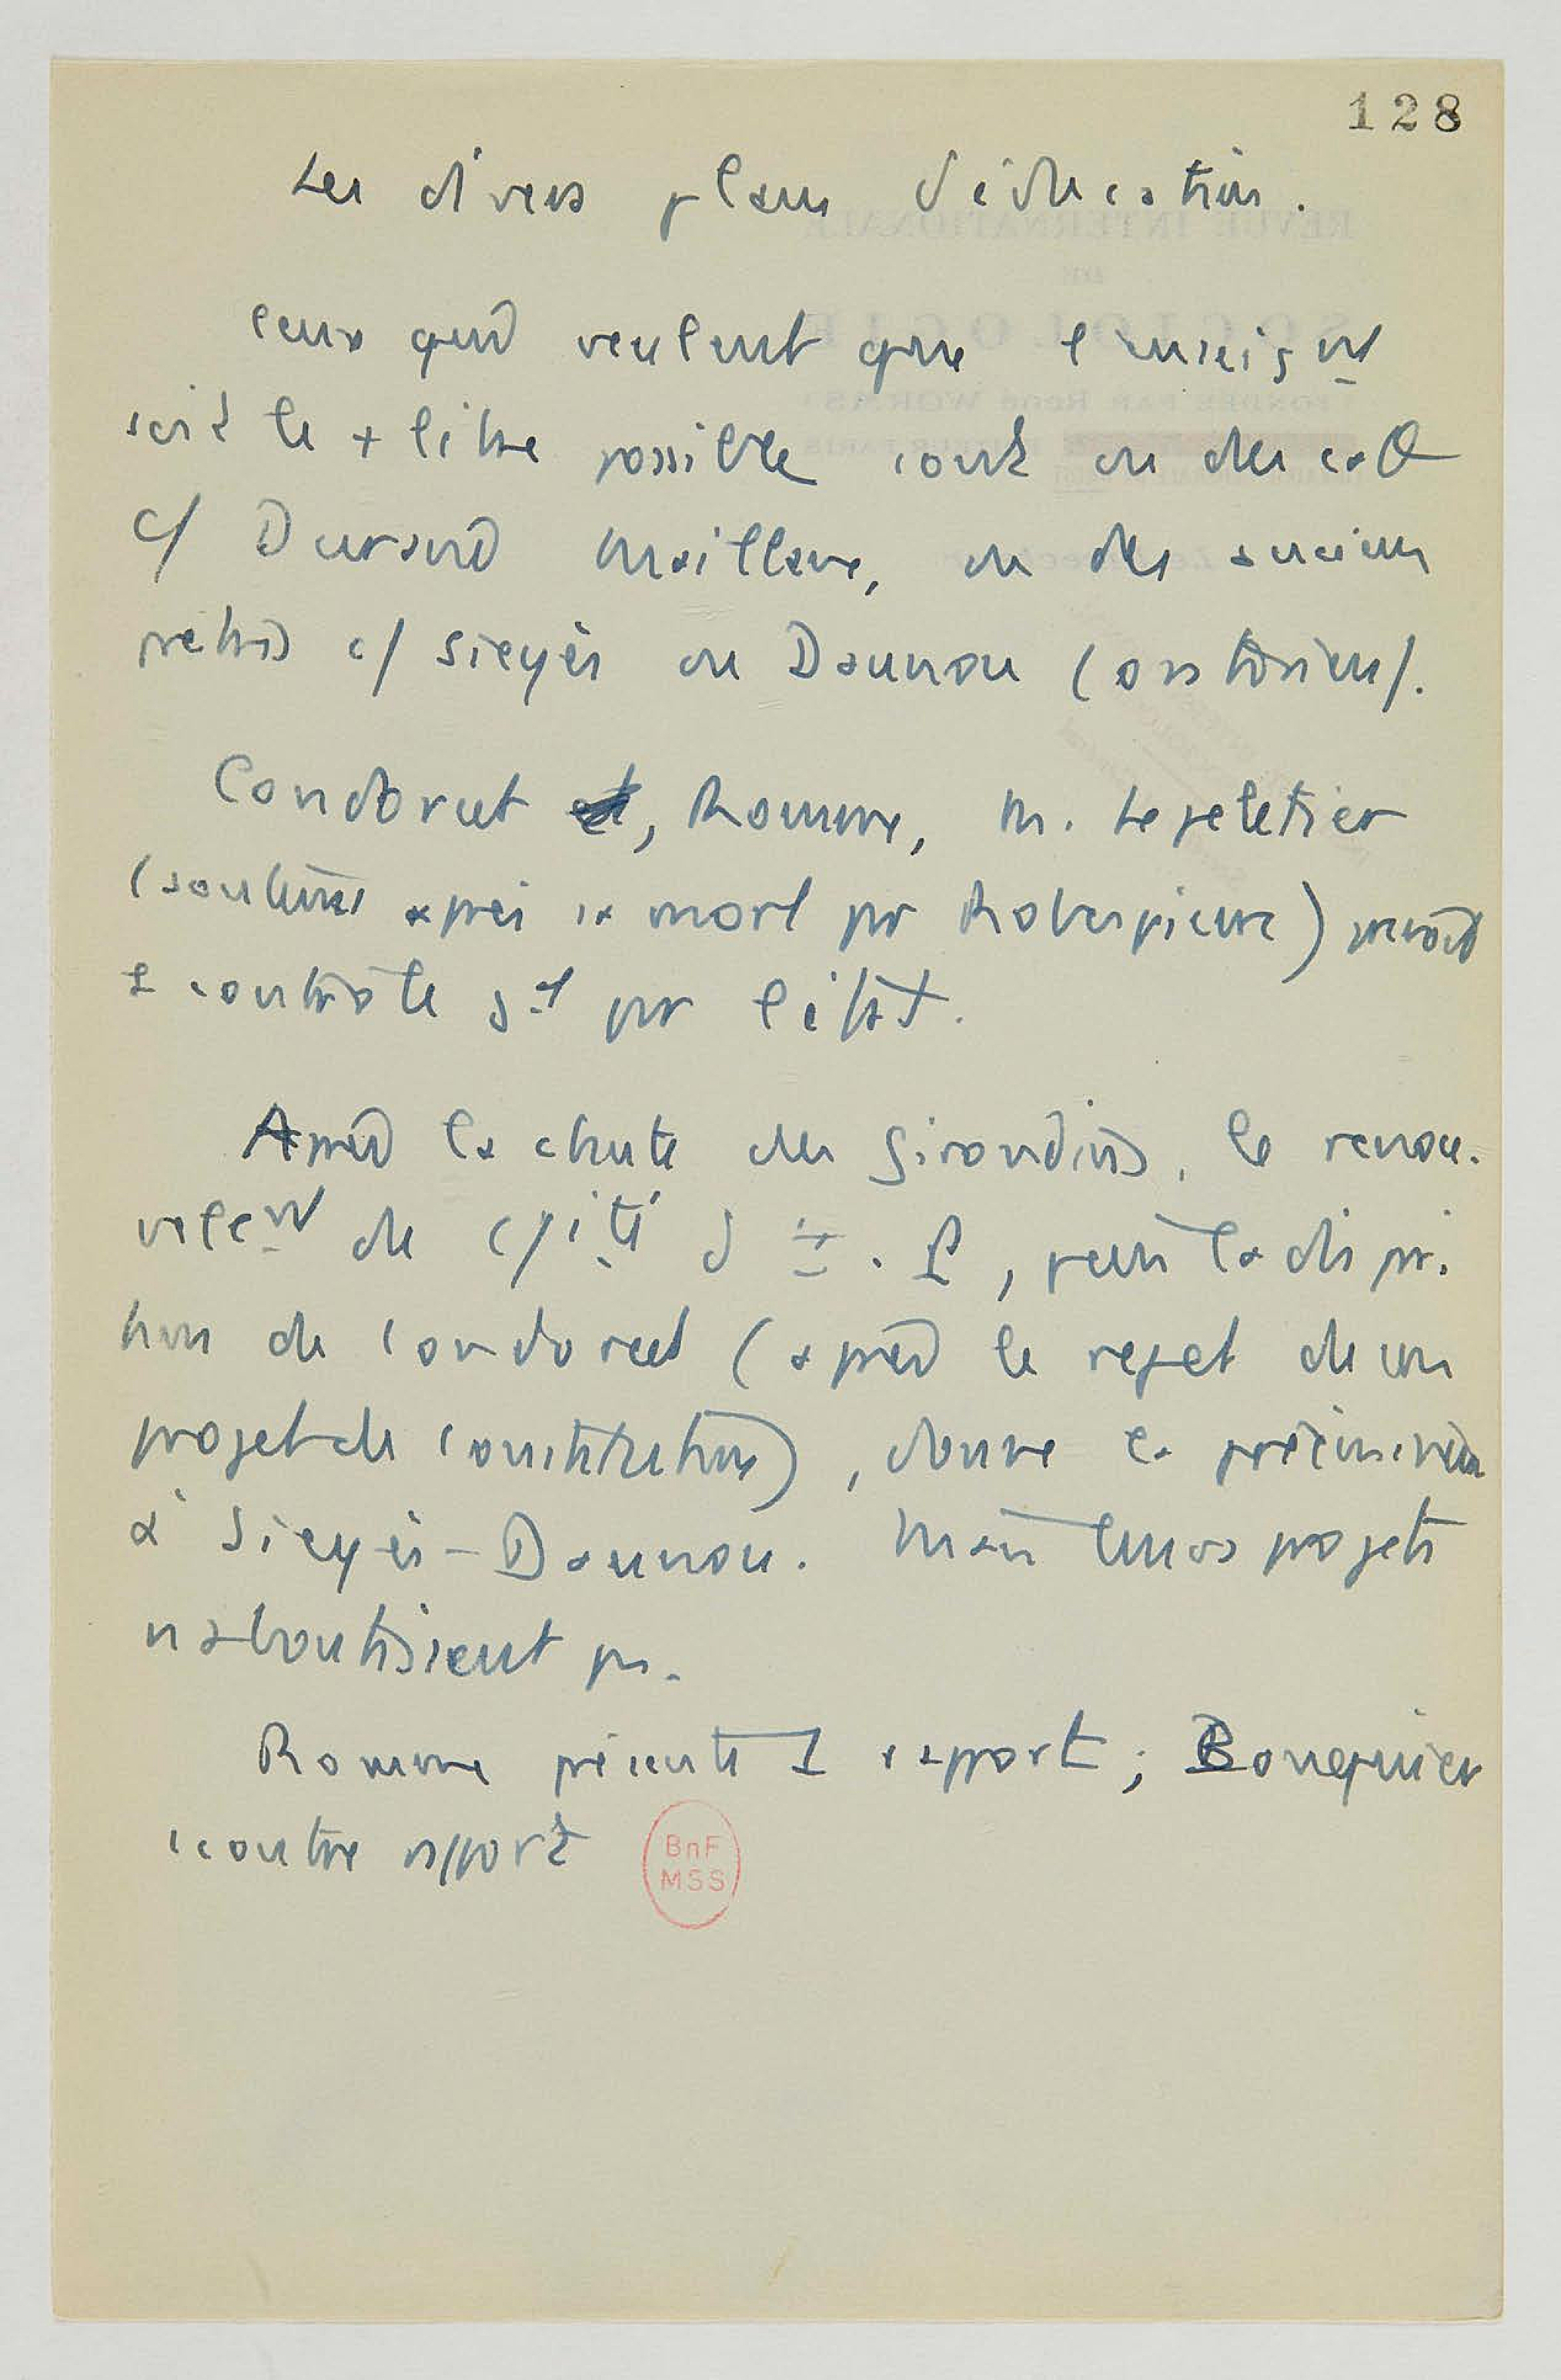 128
Les divers plans d'éducation.
Ceux qui veulent que l'enseignt
soit le + libre possible sont ou des
c/ Durand Maillane, ou des anciens
prêtres c/ Sieyès ou Daunou (oratorien).
Condorcet, Romme, M. Lepeletier
(soutenu après sa mort par Robespierre)
1 contrôle par l'état.
Après la chute des Girondins, le renou-
vellemt de puis la dispari-
tion de Condorcet (après le rejet de son
projet de constitution), donne la prééminence
à Sieyès-Daunou. Mais leurs projets
n'aboutissent pas.
Romme présente 1 rapport ; Bouquier
1 contre rapport
BnF
MSS